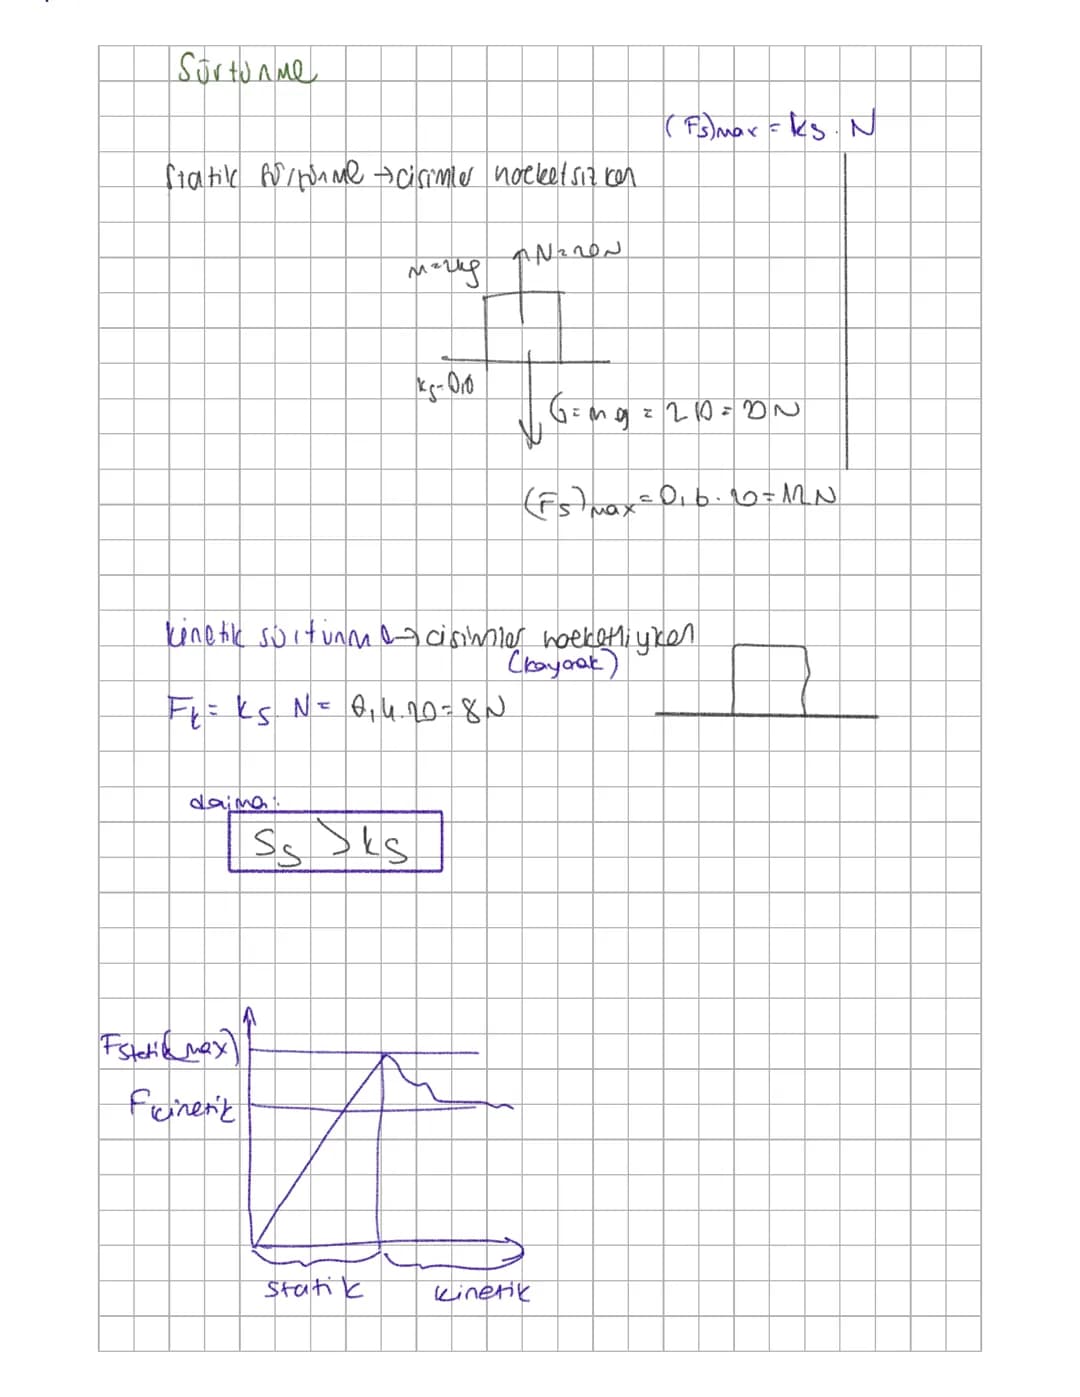 Sürtünme
(Fs)max = ks . N
Statik sürtünme → cisimler hareketsizken
m=2kg
N=20N
ks=0,6
G=mg = 2.10= 20N
(Fs)max = 0,6.20=12N
kinetik sürtünme → cisimler hareketliyken
(kayarak)
Fk = ks N = 0,4.20=8N
daima:
Ss > ks
Fstatik(max)
Fkinetik
statik
kinetik